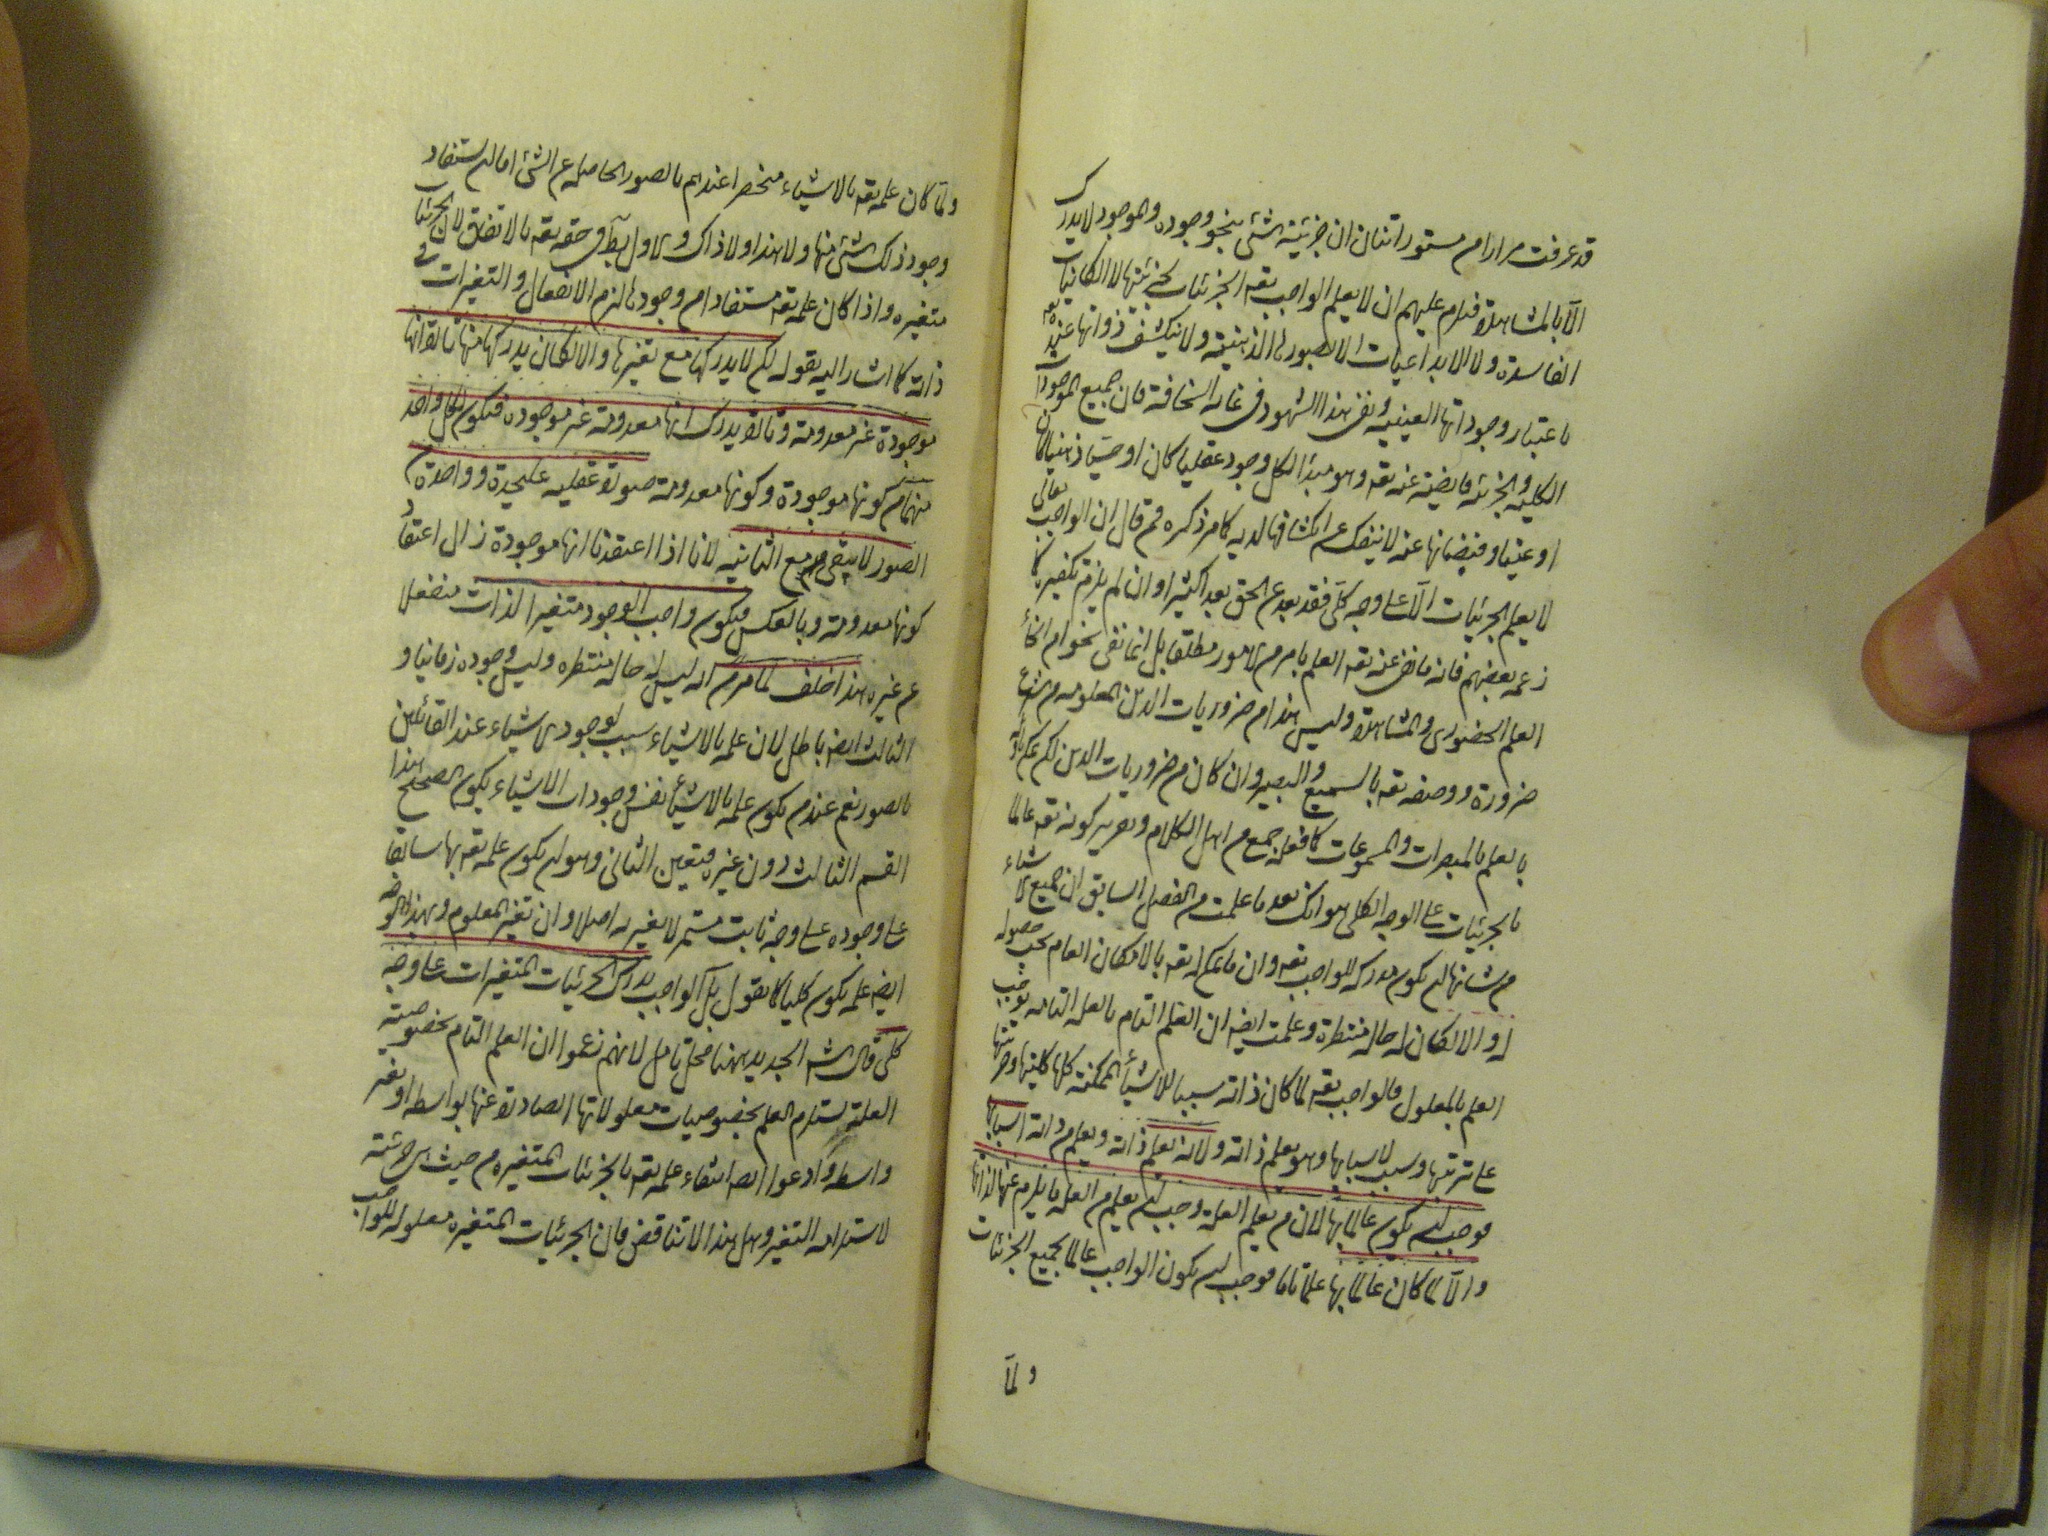 قد عرفت مرارا من مستوراتنا ان جزئية الشئ بنحو وجوده والموجود لا يدرك
الا بالمشاهدة فيلزم عليهم ان لا يعلم الواجب تعه الجزئيات بجزئيتها لا الكائنات
الفاسدة ولا الابداعيات الا بصورها الذهنية ولا ينكشف ذواتها عنده تعه
باعتبار وجوداتها العينية ونفى هذا الشهود فى غاية السخافة فان جميع الموجودات
الكلية والجزئية فايضة عنه تعه وهو مبدأ لكل وجود عقليا كان او حسيا ذهنيا كان
او عينيا وفيضانها عنه لا ينفك عن انكشافها لديه كما مر ذكره فمن قال ان الواجب تعالى
لا يعلم الجزئيات الا على وجه كلى فقد بعد عن الحق بعدا كثيرا وان لم يلزم تكفيره كما
زعمه بعضهم فانه ما نفى عنه تعه العلم بامر من الامور مطلقا بل انما نفى نحوا من انحاء
العلم الحضورى والمشاهدة وليس هذا من ضروريات الدين المعلومه من الشرع
ضرورة ووصفه تعه بالسميع والبصير وان كان من ضروريات الدين لكن يمكن تأويله
بالعلم بالمبصرات والمسموعات كما فعله جمع من اهل الكلام وتقرير كونه تعه عالما
بالجزئيات على الوجه الكلى هو انك بعد ما علمت من الفصل السابق ان جميع الاشياء
من شانها ان يكون مدركة للواجب تعه وان ما يمكن له تعه بالامكان العام يجب حصوله
له والا لكان له حاله منتظرة وعلمت ايضه ان العلم التام بالعله التامه يوجب
العلم بالمعلول فالواجب تعه لما كان ذاته سببا للاشياء الممكنة كلها كليتها وجزئيتها
على ترتيبها وسبب لاسبابها وهو يعلم ذاته ولانه يعلم ذاته ويعلم من ذاته اسبابها
فوجب ان يكون عالما بها لان من يعلم العلة وجب ان يعلم من العلم ما يلزم عنها لذاتها
والا لما كان عالما بها علما تاما فوجب ان يكون الواجب عالما بجميع الجزئيات
ولما
ولما كان علمه تعه بالاشياء منحصرا عندهم بالصور الحاصله عن الشئ اما ان يستفاد
وجود ذلك الشئ منها ولا هذا ولا ذاك والاول بط فى حقه تعه بالاتفاق لان الجزئيات
متغيره واذا كان علمه تعه مستفادا من وجودها لزم الانفعال والتغيرات فى
ذاته كما اشار اليه بقوله لكن لا يدركها مع تغيرها والا لكان يدركها منها تارة انها
موجودة غير معدومة وتارة يدرك انها معدومة غير موجوده فيكون لكل واحد
منهما من كونها موجودة وكونها معدومة صورة عقليه عليحدة وواحدة من
الصور لا يبقى مع الثانيه لانا اذا اعتقدنا انها موجودة زال اعتقاد
كونها معدومة وبالعكس فيكون واجب الوجود متغير الذات منفعلا
عن غيره هذا خلف لما مر من انه ليس له حالة منتظره وليس وجوده زمانيا و
الثالث ايضه باطل لان علمه بالاشياء سبب لوجود الاشياء عند القائلين
بالصور نعم عند من يكون علمه بالاشياء نفس وجودات الاشياء يكون الصحيح هذا
القسم الثالث دون غيره فيتعين الثانى وهو ان يكون علمه تعه بها سابقا
على وجوده على وجه ثابت مستمر لا يتغير به اصلا وان تغير المعلوم وبهذا الوجه
ايضه علمه يكون كليا كما يقول بل الواجب يدرك الجزئيات المتغيرات على وجه
كلى قال الشه الجديد ههنا محل تامل لانهم زعموا ان العلم التام بخصوصية
العلة يستلزم العلم بخصوصيات معلولاتها الصادرة عنها بواسطه او بغير
واسطه وادعوا ايضه انتفاء علمه تعه بالجزئيات المتغيره من حيث هى جزئية
لاستلزامه التغير وهل هذا الا تناقض فان الجزئيات المتغيره معلوله للواجب